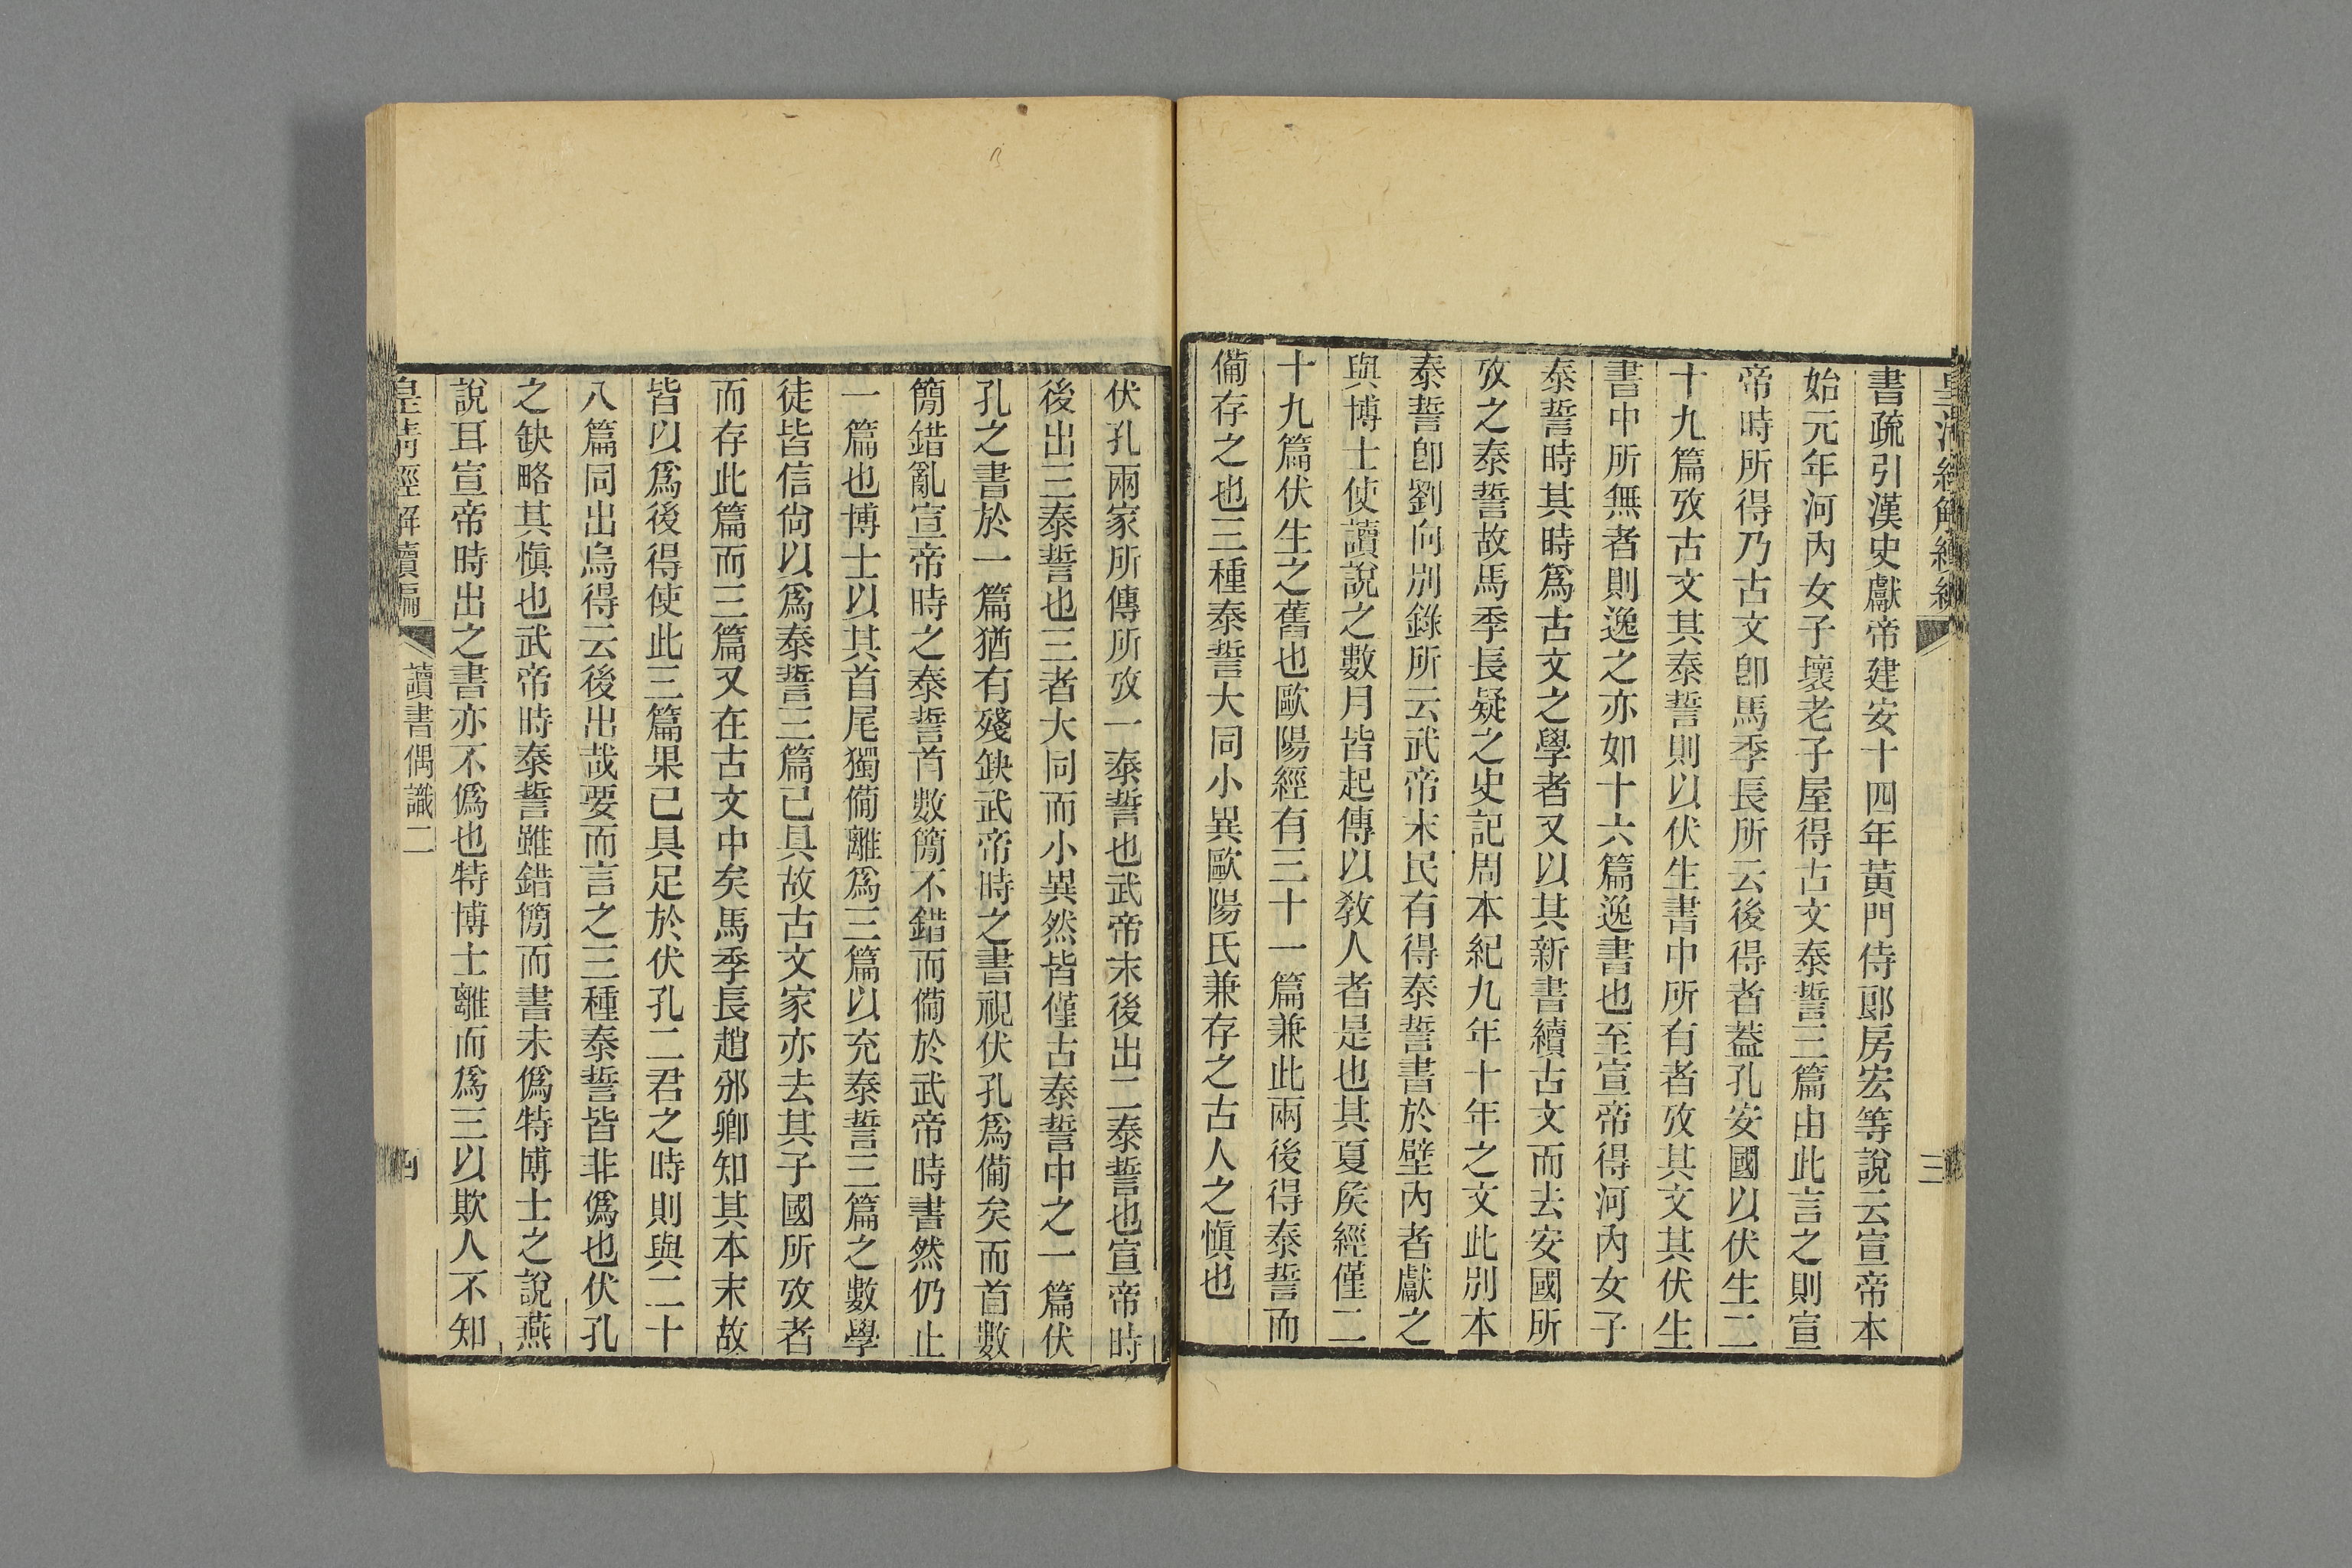 書疏引漢史獻帝建安十四年黃門侍郞房宏等說云宣帝本
始元年河內女子壞老子屋得古文泰誓三篇由此言之則宣
帝時所得乃古文卽馬季長所云後得者葢孔安國以伏生二
十九篇攷古文其泰誓則以伏生書中所有者攷其文其伏生
書中所無者則逸之亦如十六篇逸書也至宣帝得河內女子
泰誓時其時爲古文之學者又以其新書續古文而去安國所
攷之泰誓故馬季長疑之史記周本紀九年十年之文此別本
泰誓卽劉向別錄所云武帝末民有得泰誓書於壁內者獻之
與博士使讀說之數月皆起傳以敎人者是也其夏矦經僅二
十九篇伏生之舊也歐陽經有三十一篇兼此兩後得泰誓而
僃存之也三種泰誓大同小異歐陽氏兼存之古人之愼也
三
伏孔兩家所傳所攷一泰誓也武帝末後出二泰誓也宣帝時
後出三泰誓也三者大同而小異然皆僅古泰誓中之一篇伏
孔之書於一篇猶有殘缺武帝時之書視伏孔爲僃矣而首數
簡錯亂宣帝時之泰誓首數簡不錯而僃於武帝時書然仍止
一篇也博士以其首尾獨僃離爲三篇以充泰誓三篇之數學
徒皆信尙以爲泰誓三篇已具故古文家亦去其子國所攷者
而存此篇而三篇又在古文中矣馬季長趙邠卿知其本末故
皆以爲後得使此三篇果已具足於伏孔二君之時則與二十
八篇同出烏得云後出哉要而言之三種泰誓皆非僞也伏孔
之缺略其愼也武帝時泰誓雖錯簡而書未僞特博士之說燕
說耳宣帝時出之書亦不僞也特博士離而爲三以欺人不知
皇淸經解續編 讀書偶識二